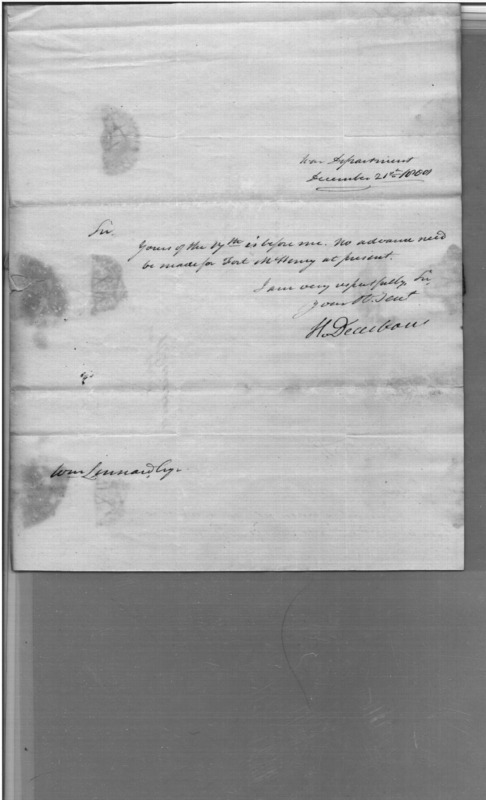 War Department
December 21st
Sir,
Yours of the 17th is before me. No advance need
be made for Fort McHenry at present.
I am very respectfully, Sir,
your Ob. Sevt
H. Dearborn
Wm Linnard, Esq.